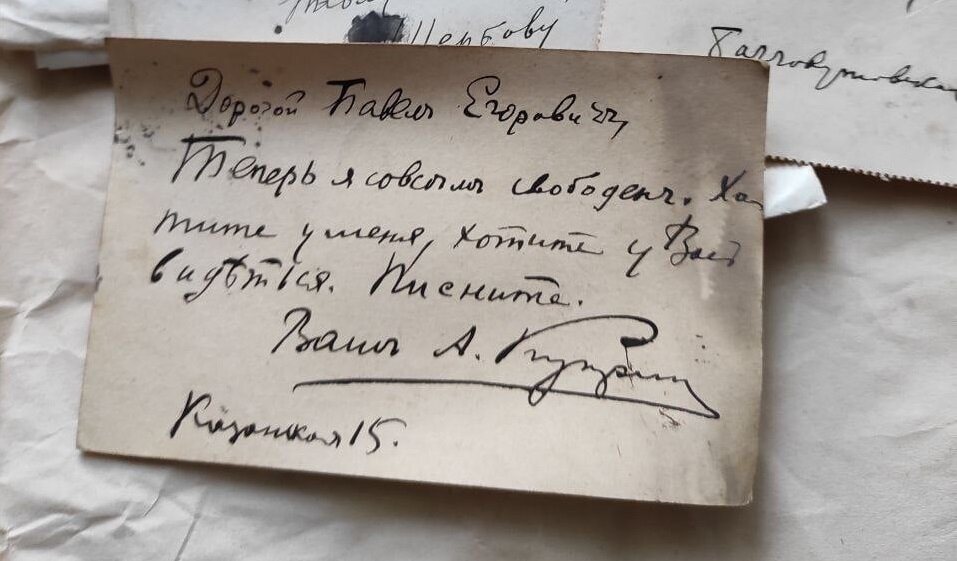 Щербову
Дорогой Павелъ Егоровичъ,
Теперь я совсѣмъ свободенъ. Хо-
тите у меня, хотите у Васъ
видѣться. Писните.
Вашъ А. Купринъ
Казанская 15.